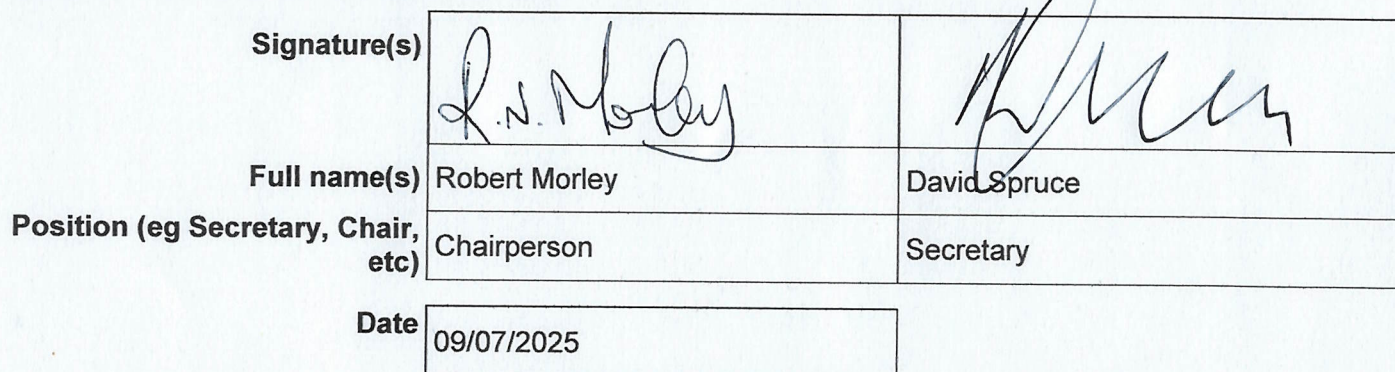 Signature(s)
R.N. Morley
Full name(s) Robert Morley David Spruce
Position (eg Secretary, Chair, etc) Chairperson Secretary
Date 09/07/2025